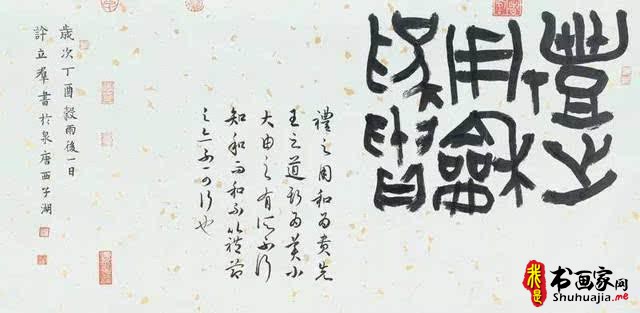 禮之
用龢
為貴
禮之用和為貴先
王之道斯為美小
大由之有所不行
知和而和不以禮節
之亦不可行也
歲次丁酉穀雨後一日
許立羣書於泉唐西子湖
我是
书画家网
Shuhuajia.me